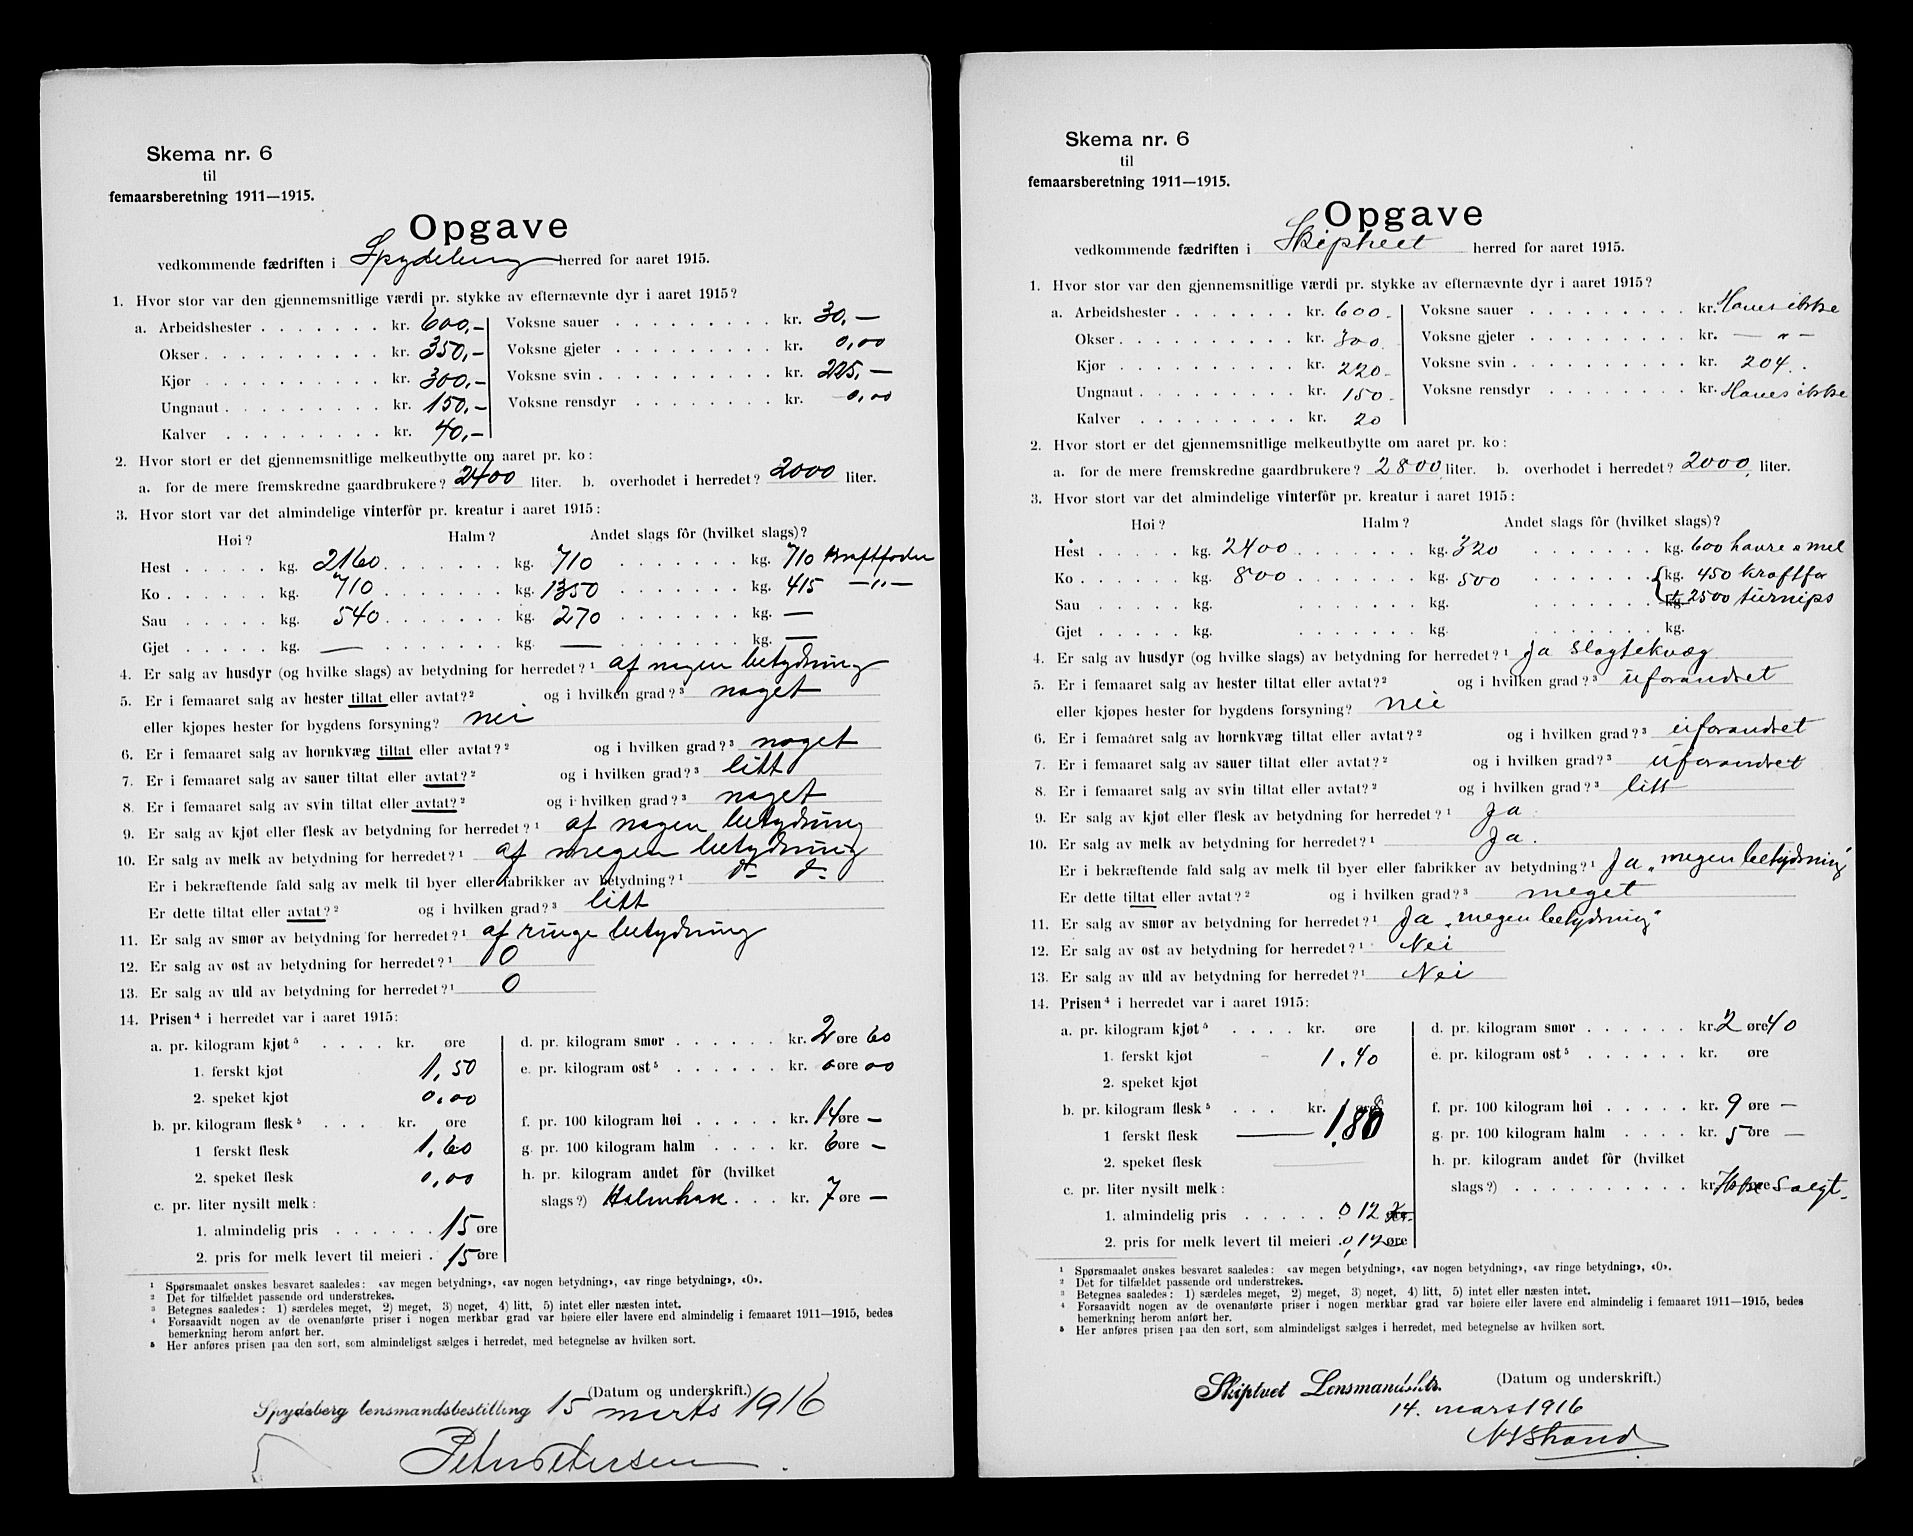 Skema nr. 6
til
femaarsberetning 1911—1915.
Opgave
vedkommende fædriften i Spydeberg herred for aaret 1915.
1. Hvor stor var den gjennemsnitlige værdi pr. stykke av efternævnte dyr i aaret 1915?
a. Arbeidshester . . . . . . . kr. 600,— Voksne sauer . . . . . . . . . kr. 30,—
Okser . . . . . . . . . . kr. 350,— Voksne gjeter . . . . . . . . . kr. 0,00
Kjør . . . . . . . . . . kr. 300,— Voksne svin . . . . . . . . . . kr. 225,—
Ungnaut . . . . . . . . . kr. 150,— Voksne rensdyr . . . . . . . . kr. 0,00
Kalver . . . . . . . . . kr. 40,—
2. Hvor stort er det gjennemsnitlige melkeutbytte om aaret pr. ko:
a. for de mere fremskredne gaardbrukere? 2400 liter. b. overhodet i herredet? 2000 liter.
3. Hvor stort var det almindelige vinterfôr pr. kreatur i aaret 1915:
Høi? Halm? Andet slags fôr (hvilket slags)?
Hest . . . . . kg. 2160 . . . . . . . kg. 710 . . . . . . . kg. 710 Kraftfoder
Ko . . . . . . kg. 710 . . . . . . . kg. 1350 . . . . . . . kg. 415 —"—
Sau . . . . . kg. 540 . . . . . . . kg. 270 . . . . . . . kg. —
Gjet . . . . . kg. — . . . . . . . kg. — . . . . . . . kg. —
4. Er salg av husdyr (og hvilke slags) av betydning for herredet?¹ af nogen betydning
5. Er i femaaret salg av hester tiltat eller avtat?² og i hvilken grad?³ noget
eller kjøpes hester for bygdens forsyning? nei
6. Er i femaaret salg av hornkvæg tiltat eller avtat?² og i hvilken grad?³ noget
7. Er i femaaret salg av sauer tiltat eller avtat?² og i hvilken grad?³ litt
8. Er i femaaret salg av svin tiltat eller avtat?² og i hvilken grad?³ noget
9. Er salg av kjøt eller flesk av betydning for herredet?¹ af nogen betydning
10. Er salg av melk av betydning for herredet?¹ af megen betydning
Er i bekræftende fald salg av melk til byer eller fabrikker av betydning?¹ do do
Er dette tiltat eller avtat?² og i hvilken grad?³ litt
11. Er salg av smør av betydning for herredet?¹ af ringe betydning
12. Er salg av ost av betydning for herredet?¹ 0
13. Er salg av uld av betydning for herredet?¹ 0
14. Prisen⁴ i herredet var i aaret 1915:
a. pr. kilogram kjøt⁵ . . . . kr. øre d. pr. kilogram smør . . . . . . kr. 2 øre 60
1. ferskt kjøt 1,50 e. pr. kilogram ost⁵ . . . . . . kr. 0 øre 00
2. speket kjøt 0,00
b. pr. kilogram flesk⁵ . . . kr. øre f. pr. 100 kilogram høi . . . . . kr. 14 øre —
1 ferskt flesk 1,60 g. pr. 100 kilogram halm . . . . kr. 6 øre —
2. speket flesk 0,00 h. pr. kilogram andet fôr (hvilket
c. pr. liter nysilt melk: slags?) Halmhak . . . kr. 7 øre —
1. almindelig pris . . . . . . 15 øre
2. pris for melk levert til meieri . 15 øre
¹ Spørsmaalet ønskes besvaret saaledes: «av megen betydning», «av nogen betydning», «av ringe betydning», «0».
² Det for tilfældet passende ord understrekes.
³ Betegnes saaledes: 1) særdeles meget, 2) meget, 3) noget, 4) litt, 5) intet eller næsten intet.
⁴ Forsaavidt nogen av de ovenanførte priser i nogen merkbar grad var høiere eller lavere end almindelig i femaaret 1911—1915, bedes
bemerkning herom anført her.
⁵ Her anføres prisen paa den sort, som almindeligst sælges i herredet, med betegnelse av hvilken sort.
(Datum og underskrift.)
Spydeberg lensmandsbestilling 15 marts 1916
Peter Petersen

Skema nr. 6
til
femaarsberetning 1911—1915.
Opgave
vedkommende fædriften i Skiptvet herred for aaret 1915.
1. Hvor stor var den gjennemsnitlige værdi pr. stykke av efternævnte dyr i aaret 1915?
a. Arbeidshester . . . . . . . kr. 600.- Voksne sauer . . . . . . . . . kr. Haves ikke
Okser . . . . . . . . . . kr. 300. Voksne gjeter . . . . . . . . . kr. — „ —
Kjør . . . . . . . . . . kr. 220.- Voksne svin . . . . . . . . . . kr. 204.
Ungnaut . . . . . . . . . kr. 150.- Voksne rensdyr . . . . . . . . kr. Haves ikke
Kalver . . . . . . . . . kr. 20
2. Hvor stort er det gjennemsnitlige melkeutbytte om aaret pr. ko:
a. for de mere fremskredne gaardbrukere? 2800 liter. b. overhodet i herredet? 2000 liter.
3. Hvor stort var det almindelige vinterfôr pr. kreatur i aaret 1915:
Høi? Halm? Andet slags fôr (hvilket slags)?
Hest . . . . . kg. 2400 . . . . . . . kg. 320 . . . . . . . kg. 600 havre o mel
Ko . . . . . . kg. 800 . . . . . . . kg. 500 . . . . . . . kg. 450 kraftfor
Sau . . . . . kg. . . . . . . . kg. . . . . . . . kg. 2500 turnips
Gjet . . . . . kg. . . . . . . . kg. . . . . . . . kg.
4. Er salg av husdyr (og hvilke slags) av betydning for herredet?¹ Ja slagtekvæg
5. Er i femaaret salg av hester tiltat eller avtat?² og i hvilken grad?³ uforandret
eller kjøpes hester for bygdens forsyning? nei
6. Er i femaaret salg av hornkvæg tiltat eller avtat?² og i hvilken grad?³ uforandret
7. Er i femaaret salg av sauer tiltat eller avtat?² og i hvilken grad?³ uforandret
8. Er i femaaret salg av svin tiltat eller avtat?² og i hvilken grad?³ litt
9. Er salg av kjøt eller flesk av betydning for herredet?¹ Ja
10. Er salg av melk av betydning for herredet?¹ Ja.
Er i bekræftende fald salg av melk til byer eller fabrikker av betydning?¹ Ja „megen betydning"
Er dette tiltat eller avtat?² og i hvilken grad?³ meget
11. Er salg av smør av betydning for herredet?¹ Ja „megen betydning"
12. Er salg av ost av betydning for herredet?¹ Nei
13. Er salg av uld av betydning for herredet?¹ Nei
14. Prisen⁴ i herredet var i aaret 1915:
a. pr. kilogram kjøt⁵ . . . . kr. øre d. pr. kilogram smør . . . . . . kr. 2 øre 40
1. ferskt kjøt 1.40 e. pr. kilogram ost⁵ . . . . . . kr. øre
2. speket kjøt
b. pr. kilogram flesk⁵ . . . kr. øre f. pr. 100 kilogram høi . . . . . kr. 9 øre —
1 ferskt flesk — 1,80 g. pr. 100 kilogram halm . . . . kr. 5 øre —
2. speket flesk h. pr. kilogram andet fôr (hvilket
c. pr. liter nysilt melk: slags?) . . . . . . . . . . kr. øre Ikke solgt.
1. almindelig pris . . . . . . 0,12 øre
2. pris for melk levert til meieri . 0,12 øre
¹ Spørsmaalet ønskes besvaret saaledes: «av megen betydning», «av nogen betydning», «av ringe betydning», «0».
² Det for tilfældet passende ord understrekes.
³ Betegnes saaledes: 1) særdeles meget, 2) meget, 3) noget, 4) litt, 5) intet eller næsten intet.
⁴ Forsaavidt nogen av de ovenanførte priser i nogen merkbar grad var høiere eller lavere end almindelig i femaaret 1911—1915, bedes
bemerkning herom anført her.
⁵ Her anføres prisen paa den sort, som almindeligst sælges i herredet, med betegnelse av hvilken sort.
(Datum og underskrift.)
Skiptvet Lensmandsktr.
14. mars 1916
Strand